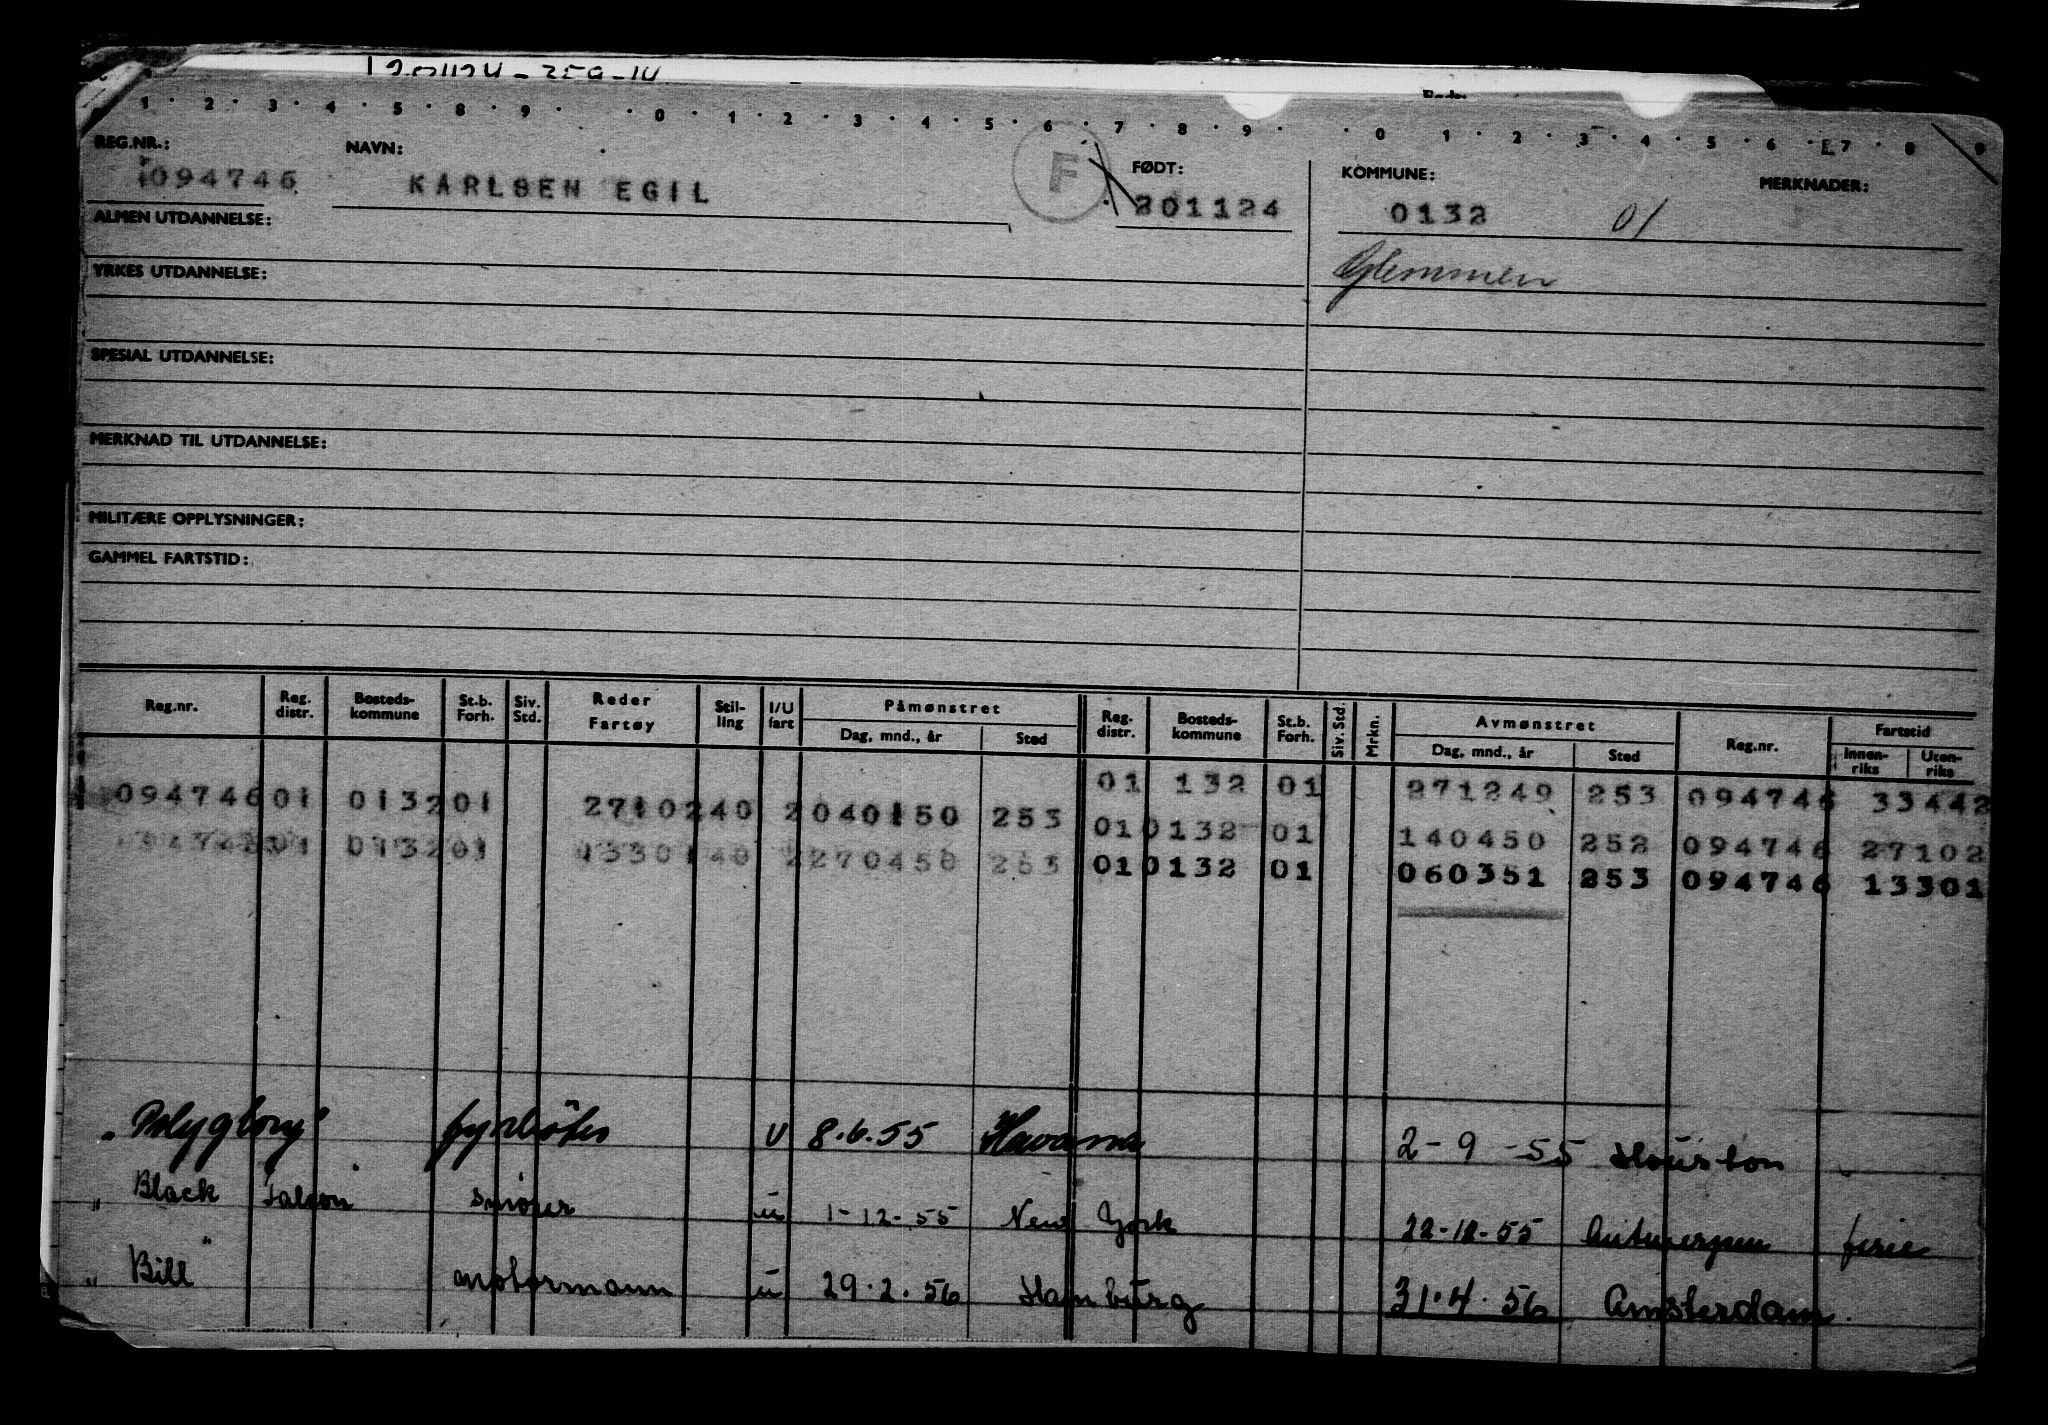 1 · 2 · 3 · 4 · 5 · 8 · 9 · · 0 · 1 · 2 · 3 · 4 · 5 · 6 · 7 · 8 · 9 · · 0 · 1 · 2 · 3 · 4 · 5 · 6 · 7 · 8 9
REG.NR.: NAVN: FØDT: KOMMUNE: MERKNADER:
094746 KARLSEN EGIL F 201124 0132 01
ALMEN UTDANNELSE:
Glemmen
YRKES UTDANNELSE:
SPESIAL UTDANNELSE:
MERKNAD TIL UTDANNELSE:
MILITÆRE OPPLYSNINGER:
GAMMEL FARTSTID:
Reg.nr. Reg. distr. Bosteds-kommune St.b. Forh. Siv. Std. Reder Fartøy Stil-ling I/U fart Påmønstret Dag, mnd., år Sted Reg. distr. Bosteds-kommune St.b. Forh. Siv. Std. Mrkn. Avmønstret Dag, mnd., år Sted Reg.nr. Fartstid Innen-riks Uten-riks
01 132 01 271249 253 094746 33442
094746 01 0132 01 2710240 2 040150 253 01 0132 01 140450 252 094746 27102
01 0132 01 1330140 2 270450 253 01 0132 01 060351 253 094746 13301
" Polyglory" fyrbøter U 8.6.55 Havanna 2-9-55 Houston
" Black Falcon" smører u 1-12-55 New York 22-12-55 Antwerpen ferie
" Bill" motormann u 29.2.56 Hamburg 31.4.56 Amsterdam.